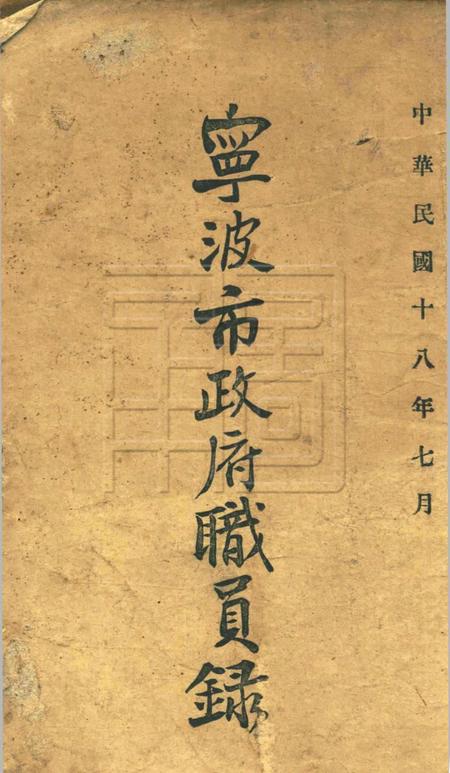 中華民國十八年七月
寧波市政府職員録